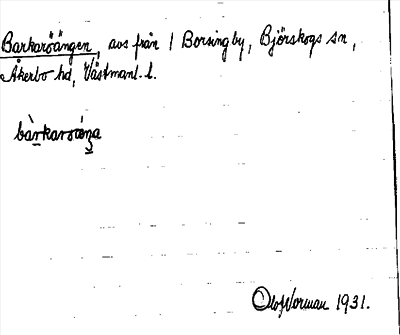 Barkarsängen, avs från 1 Borsingby, Björskogs sn,
Åkerbo hd, Västmanl. l.
Olof Norman 1931.